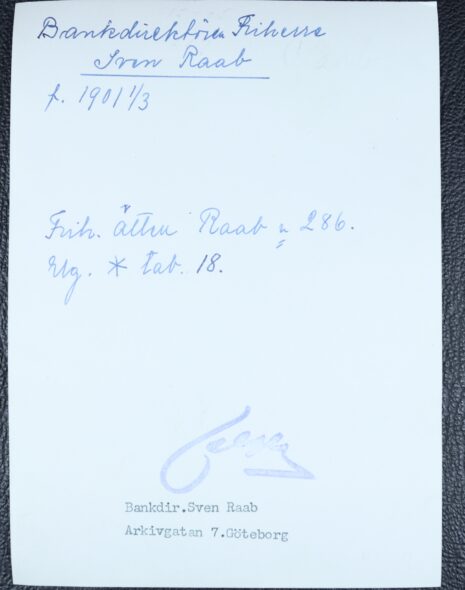 Bankdirektören Friherre
Sven Raab
f. 1901 1/3
Frih. ätten Raab n 286.
Elg. * tab. 18.
Bankdir.Sven Raab
Arkivgatan 7.Göteborg